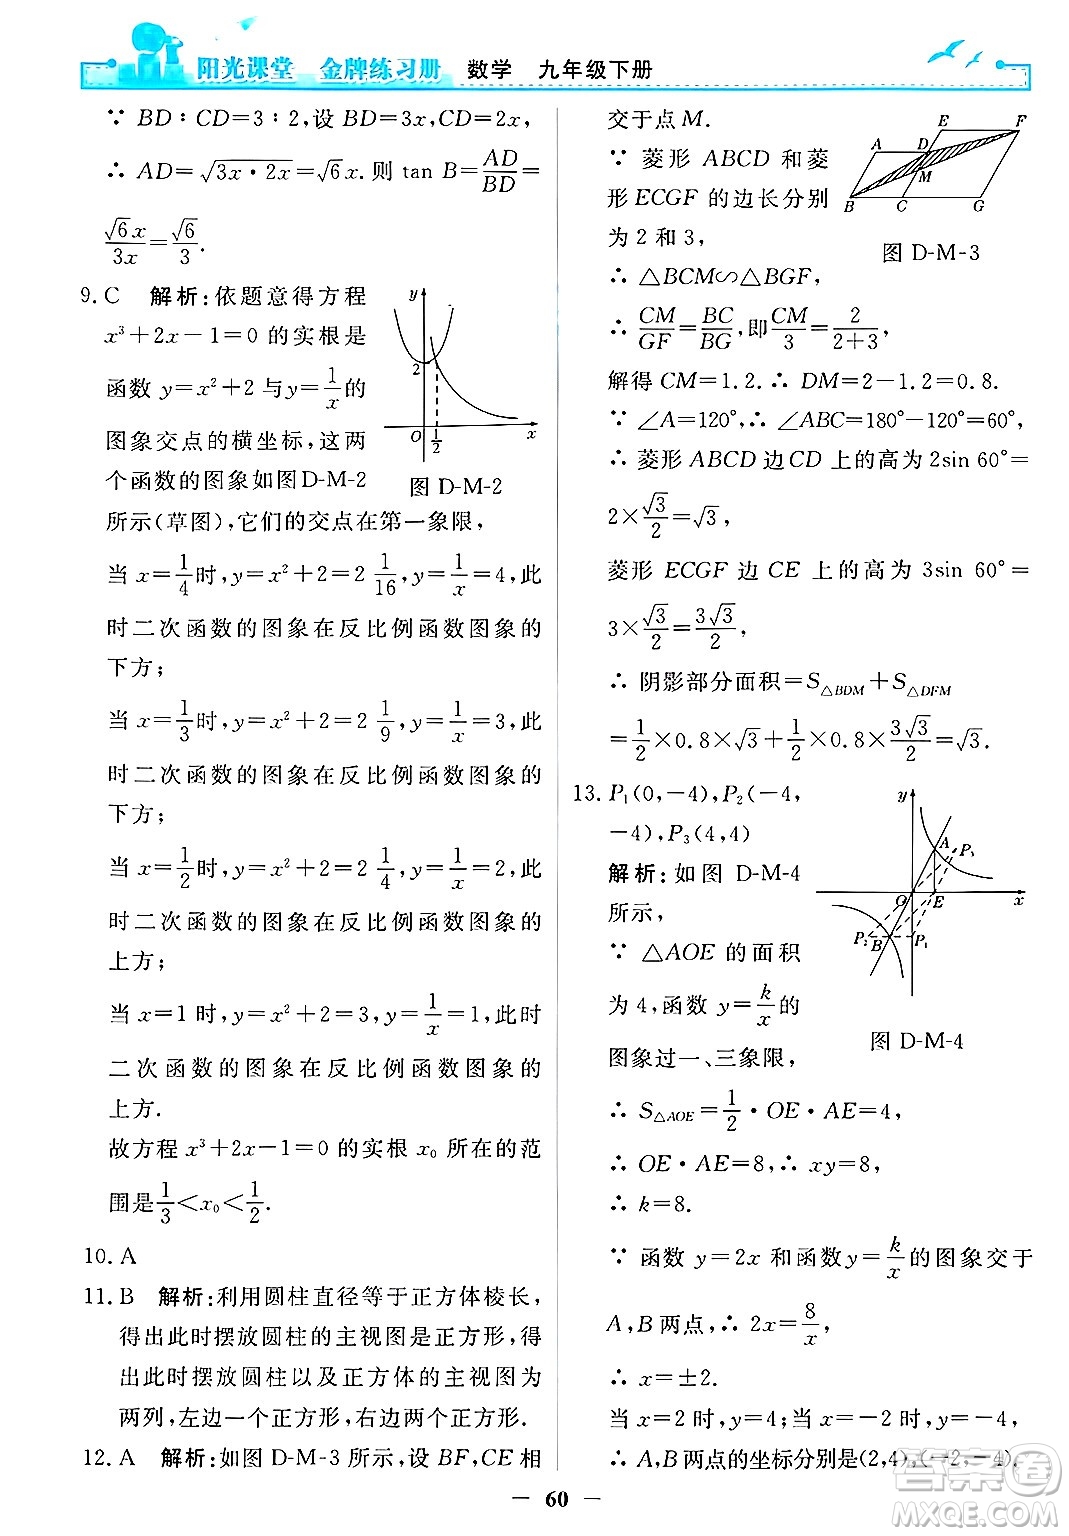 阳光课堂 金牌练习册 数学 九年级下册
∵ BD∶CD=3∶2,设 BD=3x,CD=2x,
∴ AD=√(3x·2x)=√6x.则 tan B=AD/BD=
√6x/3x=√6/3.
9.C 解析:依题意得方程
x³+2x-1=0 的实根是
函数 y=x²+2 与 y=1/x 的
图象交点的横坐标,这两
个函数的图象如图D-M-2
所示(草图),它们的交点在第一象限,
y
2
O
1/2
x
图 D-M-2
当 x=1/4时,y=x²+2=2 1/16,y=1/x=4,此
时二次函数的图象在反比例函数图象的
下方;
当 x=1/3时,y=x²+2=2 1/9,y=1/x=3,此
时二次函数的图象在反比例函数图象的
下方;
当 x=1/2时,y=x²+2=2 1/4,y=1/x=2,此
时二次函数的图象在反比例函数图象的
上方;
当 x=1 时,y=x²+2=3,y=1/x=1,此时
二次函数的图象在反比例函数图象的
上方.
故方程 x³+2x-1=0 的实根 x₀ 所在的范
围是1/3<x₀<1/2.
10.A
11.B 解析:利用圆柱直径等于正方体棱长,
得出此时摆放圆柱的主视图是正方形,得
出此时摆放圆柱以及正方体的主视图为
两列,左边一个正方形,右边两个正方形.
12.A 解析:如图 D-M-3 所示,设 BF,CE 相
交于点 M.
∵ 菱形 ABCD 和菱
形 ECGF 的边长分别
为 2 和 3,
E F
A D
M
B C G
图 D-M-3
∴ △BCM∽△BGF,
∴ CM/GF=BC/BG,即CM/3=2/(2+3),
解得 CM=1.2.∴ DM=2-1.2=0.8.
∵ ∠A=120°,∴ ∠ABC=180°-120°=60°,
∴ 菱形 ABCD 边 CD 上的高为 2sin 60°=
2×√3/2=√3,
菱形 ECGF 边 CE 上的高为 3sin 60°=
3×√3/2=3√3/2,
∴ 阴影部分面积=S△BDM+S△DFM
=1/2×0.8×√3+1/2×0.8×3√3/2=√3.
13.P₁(0,-4),P₂(-4,
-4),P₃(4,4)
解析:如图 D-M-4
所示,
∵ △AOE 的面积
为 4,函数 y=k/x的
图象过一、三象限,
y
A
P₃
O E x
P₂ B P₁
图 D-M-4
∴ S△AOE=1/2·OE·AE=4,
∴ OE·AE=8,∴ xy=8,
∴ k=8.
∵ 函数 y=2x 和函数 y=k/x的图象交于
A,B 两点,∴ 2x=8/x,
∴ x=±2.
当 x=2 时,y=4;当 x=-2 时,y=-4,
∴ A,B 两点的坐标分别是(2,4),(-2,-4).
— 60 —
答案圈
MXQE.COM